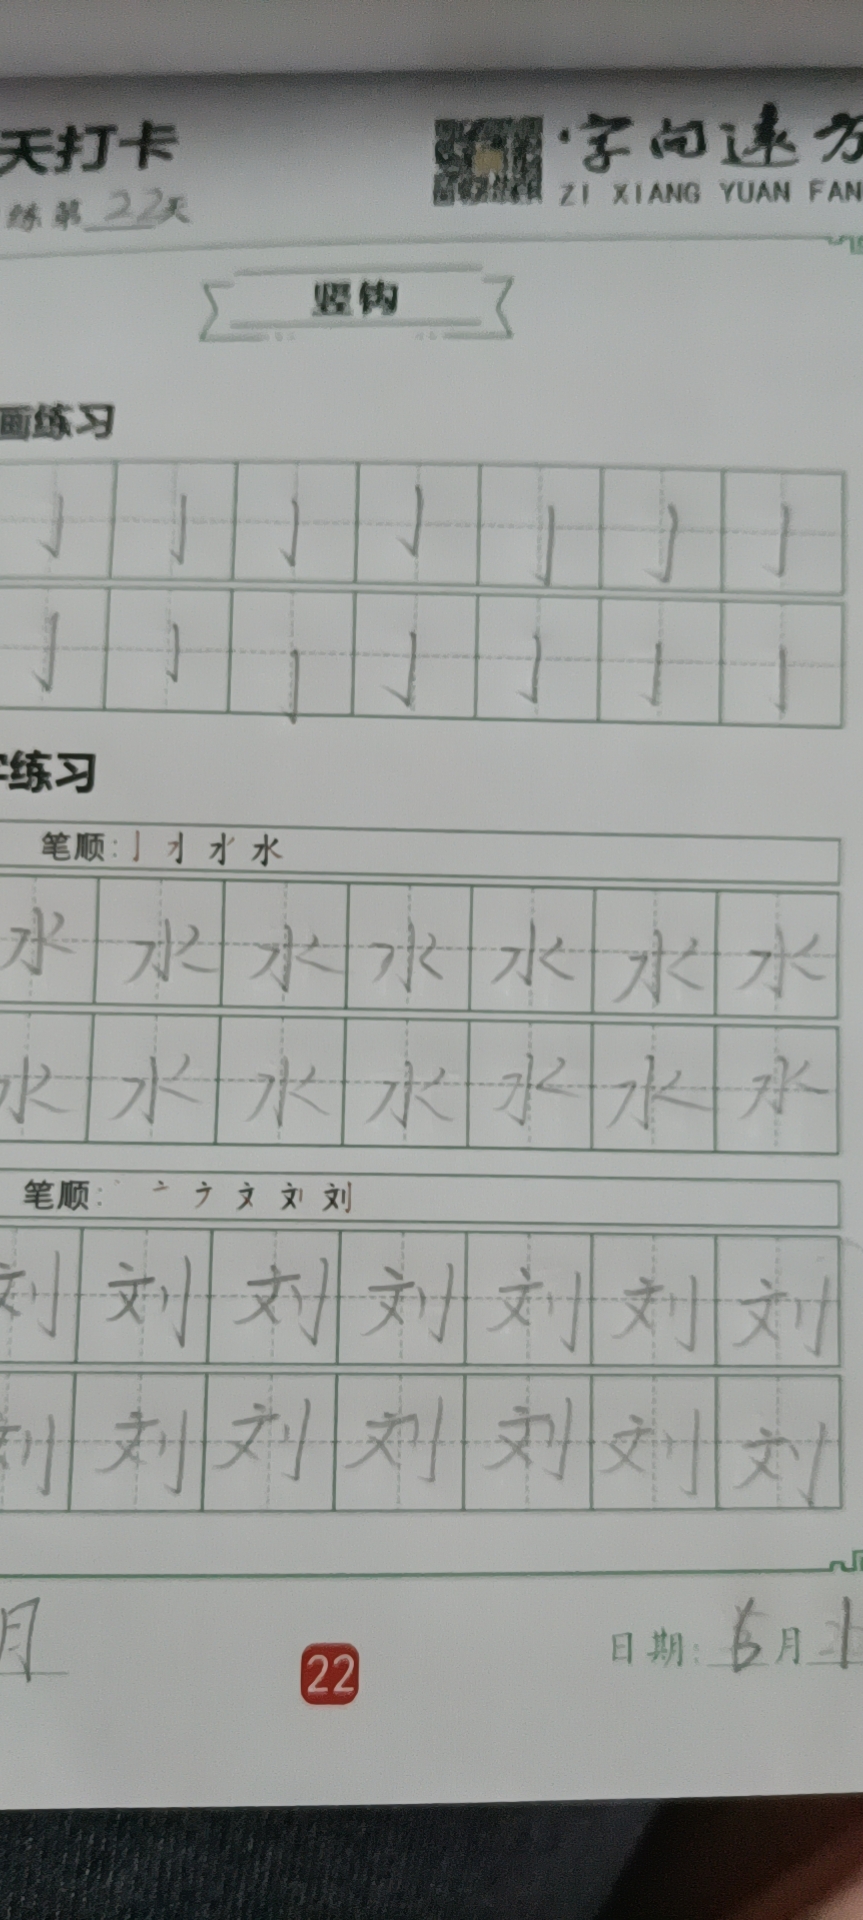 天打卡
·字向远方
ZI XIANG YUAN FAN
练第22天
竖钩
画练习
亅亅亅亅亅亅亅
亅亅亅亅亅亅亅
字练习
笔顺:亅 水
水水水水水水水
水水水水水水水
笔顺:丶 亠 文 刘
刘刘刘刘刘刘刘
刘刘刘刘刘刘刘
月
22
日期: 月